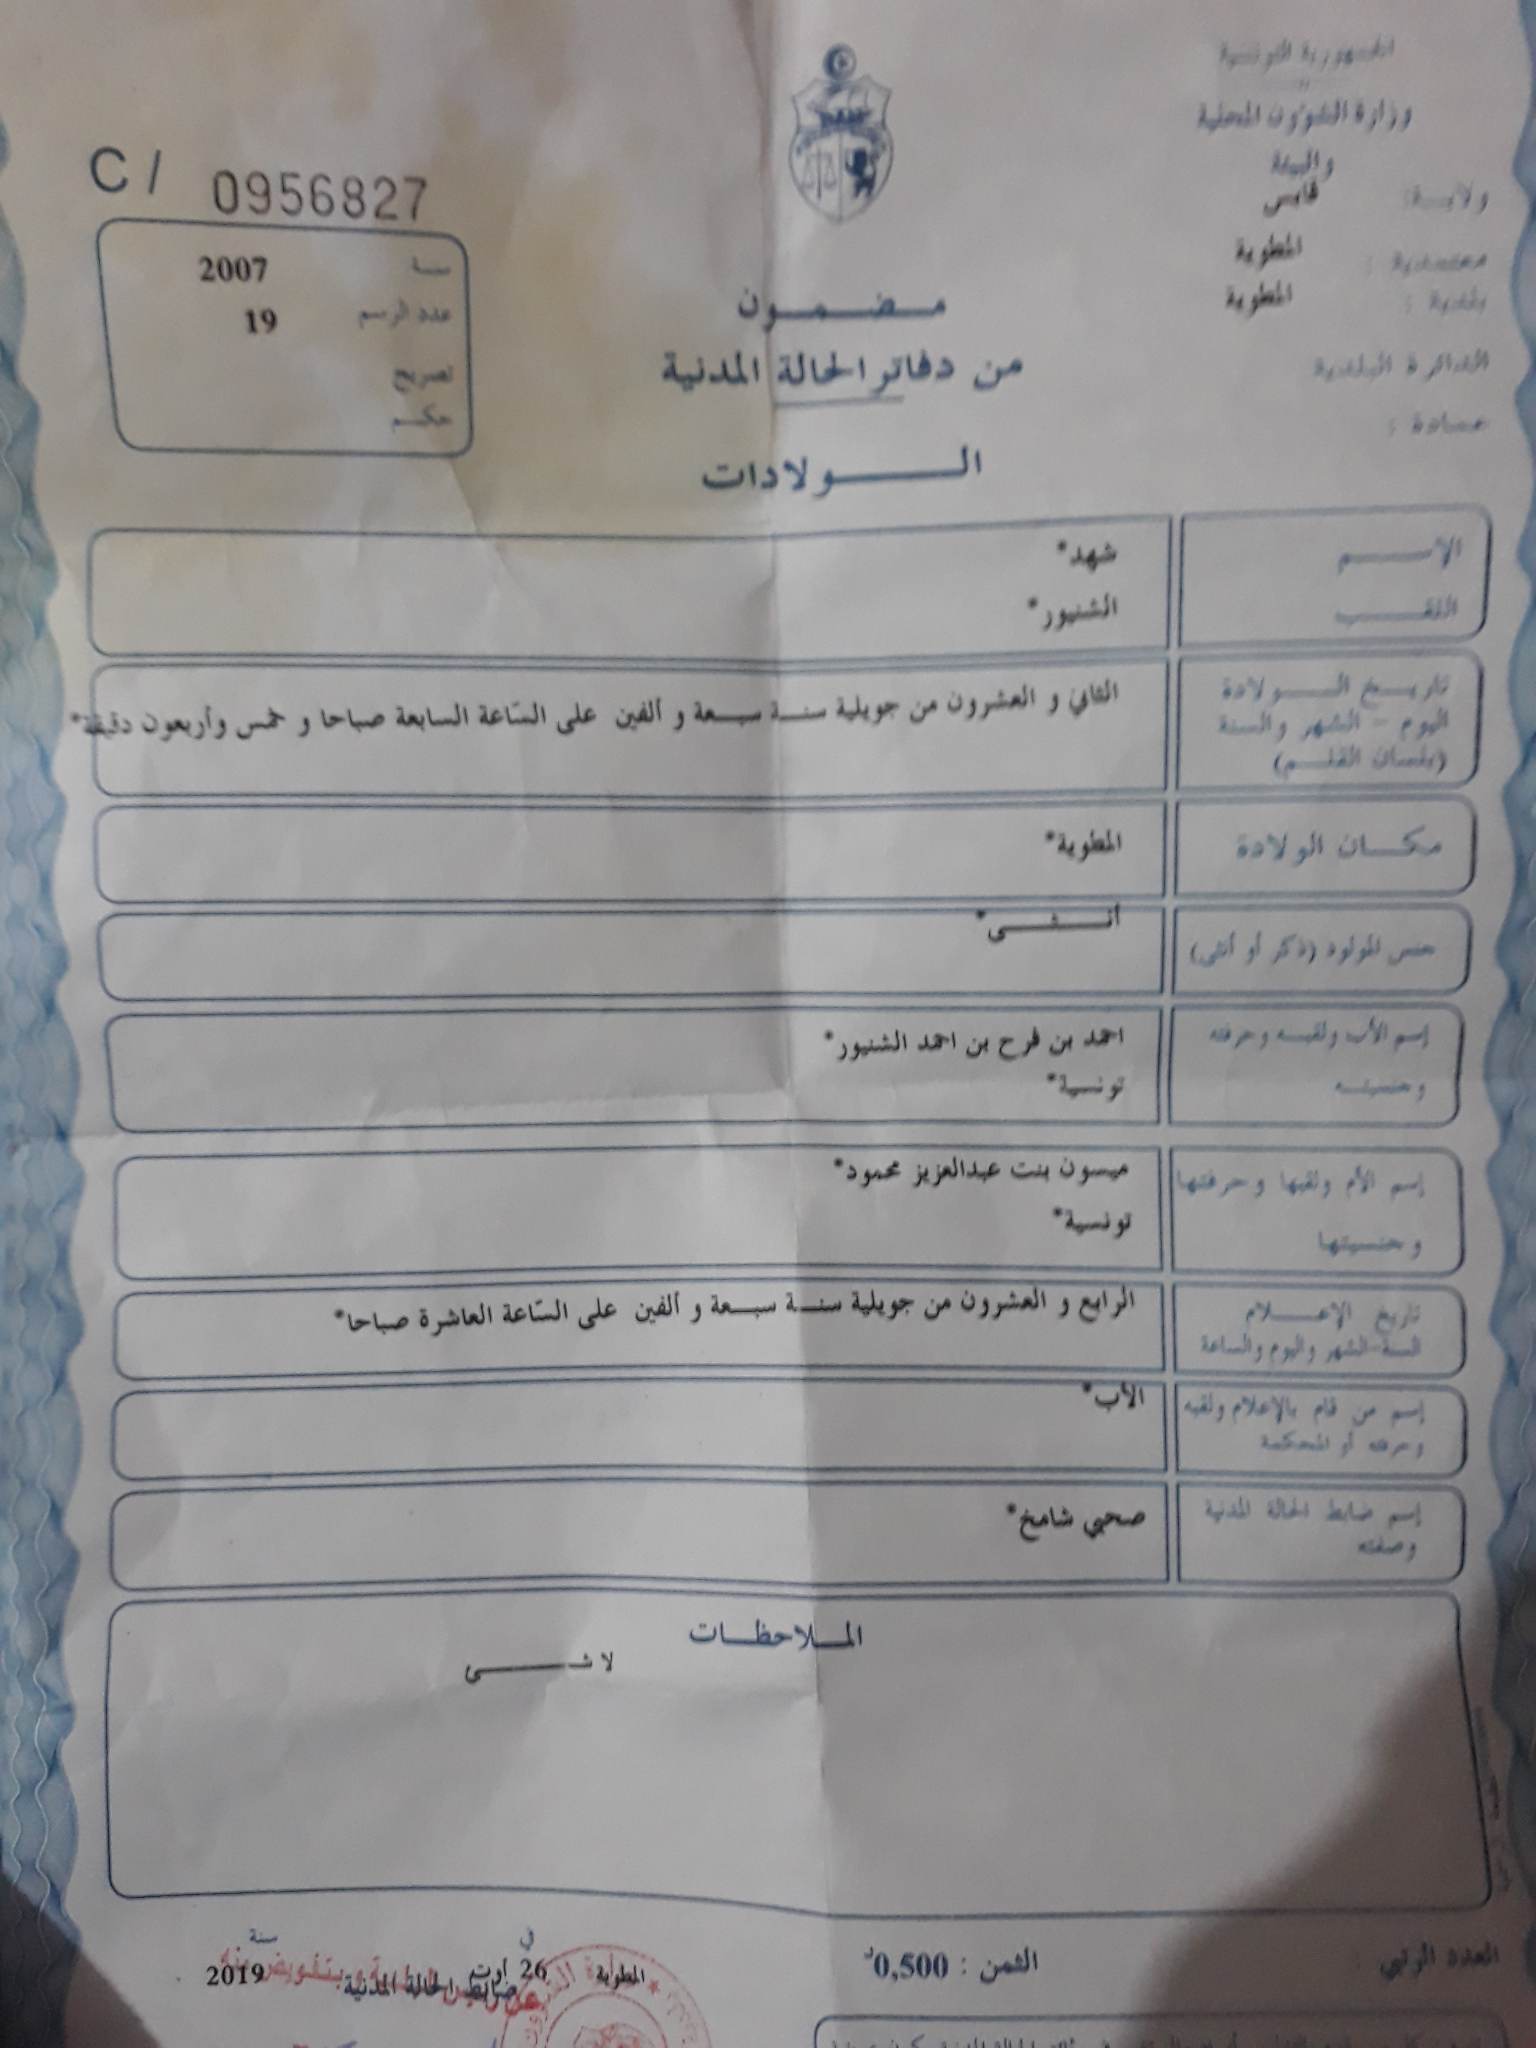 الجمهورية التونسية
وزارة الشؤون المحلية
والبيئة
ولاية: قابس
معتمدية : المطوية
بلدية : المطوية
الدائرة البلدية
عمادة :
C / 0956827
سنة 2007
عدد الرسم 19
تصريح
حكم
مضمون
من دفاتر الحالة المدنية
الولادات
الإسم شهد*
اللقب الشنيور*
تاريخ الولادة
اليوم - الشهر والسنة
(بلسان القلم)
الثاني و العشرون من جويلية سنة سبعة و ألفين على الساعة السابعة صباحا و خمس وأربعون دقيقة*
مكان الولادة المطوية*
جنس المولود (ذكر أو أنثى) أنثى*
إسم الأب ولقبه وحرفته احمد بن فرح بن احمد الشنيور*
وجنسيته تونسية*
إسم الأم ولقبها وحرفتها ميسون بنت عبدالعزيز محمود*
وجنسيتها تونسية*
تاريخ الإعلام
السنة-الشهر واليوم والساعة
الرابع و العشرون من جويلية سنة سبعة و ألفين على الساعة العاشرة صباحا*
إسم من قام بالإعلام ولقبه الأب*
وحرفته أو المحكمة
إسم ضابط الحالة المدنية صحبي شامخ*
وصفته
الملاحظات
لا شى
العدد الرتبي
الثمن : 0,500د
المطوية في 26 اوت سنة 2019
ضابط الحالة المدنية
وبتفويض منه